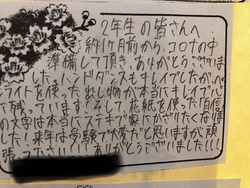 2年生の皆さんへ
約1ヶ月前から、コロナの中
準備して頂き、ありがとうございま
した。ハンドダンスもキレイでしたが、ペン
ライトを使った出し物が本当にキレイで心
に残っています。そして、花紙を使った「自信」
の文字は本当にステキで家にかざりたくなりま
した。来年は受験で大変だと思いますが、頑
張ってください!!ありがとうございました!!